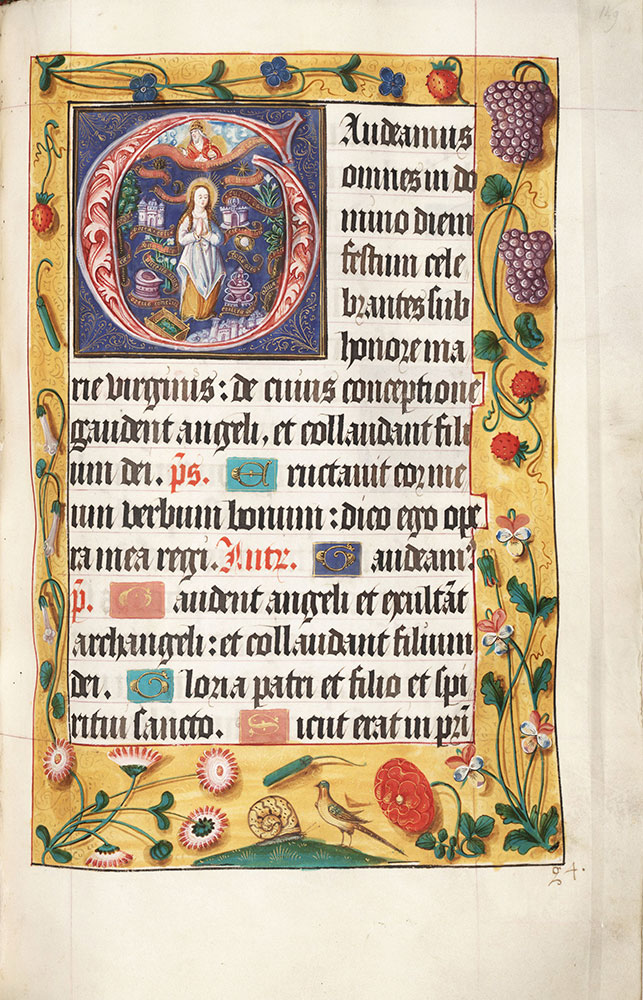 149
GAudeamus
omnes in do
mino diem
festum cele
brantes sub
honore ma
rie virginis: de cuius conceptione
gaudent angeli, et collaudant fili
um dei. p̄s. Eructauit cor me
um verbum bonum: dico ego ope
ra mea regi. Intr. Gaudeam⁹
p̄. Gaudent angeli et exultāt
archangeli: et collaudant filium
dei. Gloria patri et filio et spi
ritui sancto. Sicut erat in pri